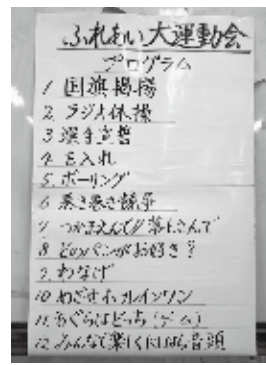 ふれあい大運動会
プログラム
1 国旗掲揚
2. ラジオ体操
3 選手宣誓
4. 玉入れ
5. ボーリング
6 巻き巻き競争
7 つかまえんで!!落とさんで
8 どのパンがお好き?
9. わなげ
10 めざせホールインワン
11. もぐらはどっち(ゲーム)
12 みんなで楽しく 音頭